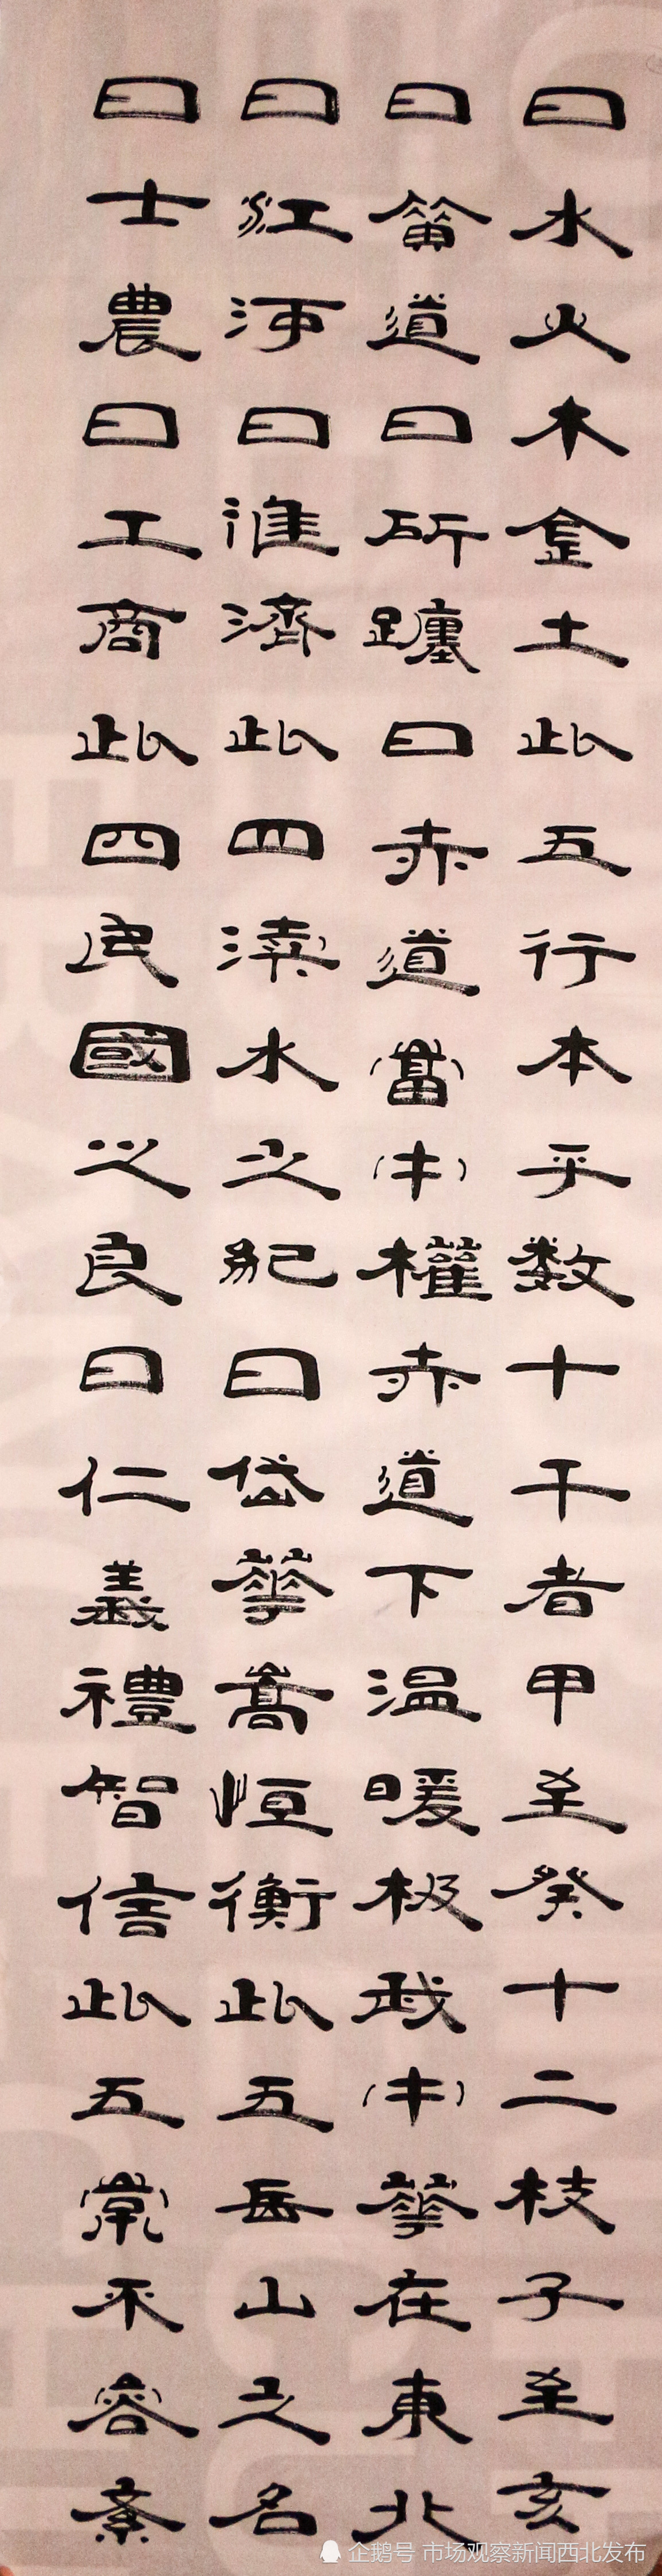 曰水火木金土此五行本乎数十干者甲至癸十二枝子至亥
曰黄道日所躔曰赤道當中權赤道下温暖极我中華在東北
曰江河曰淮濟此四瀆水之紀曰岱華嵩恒衡此五岳山之名
曰士農曰工商此四民國之良曰仁義禮智信此五常不容紊
企鹅号 市场观察新闻西北发布